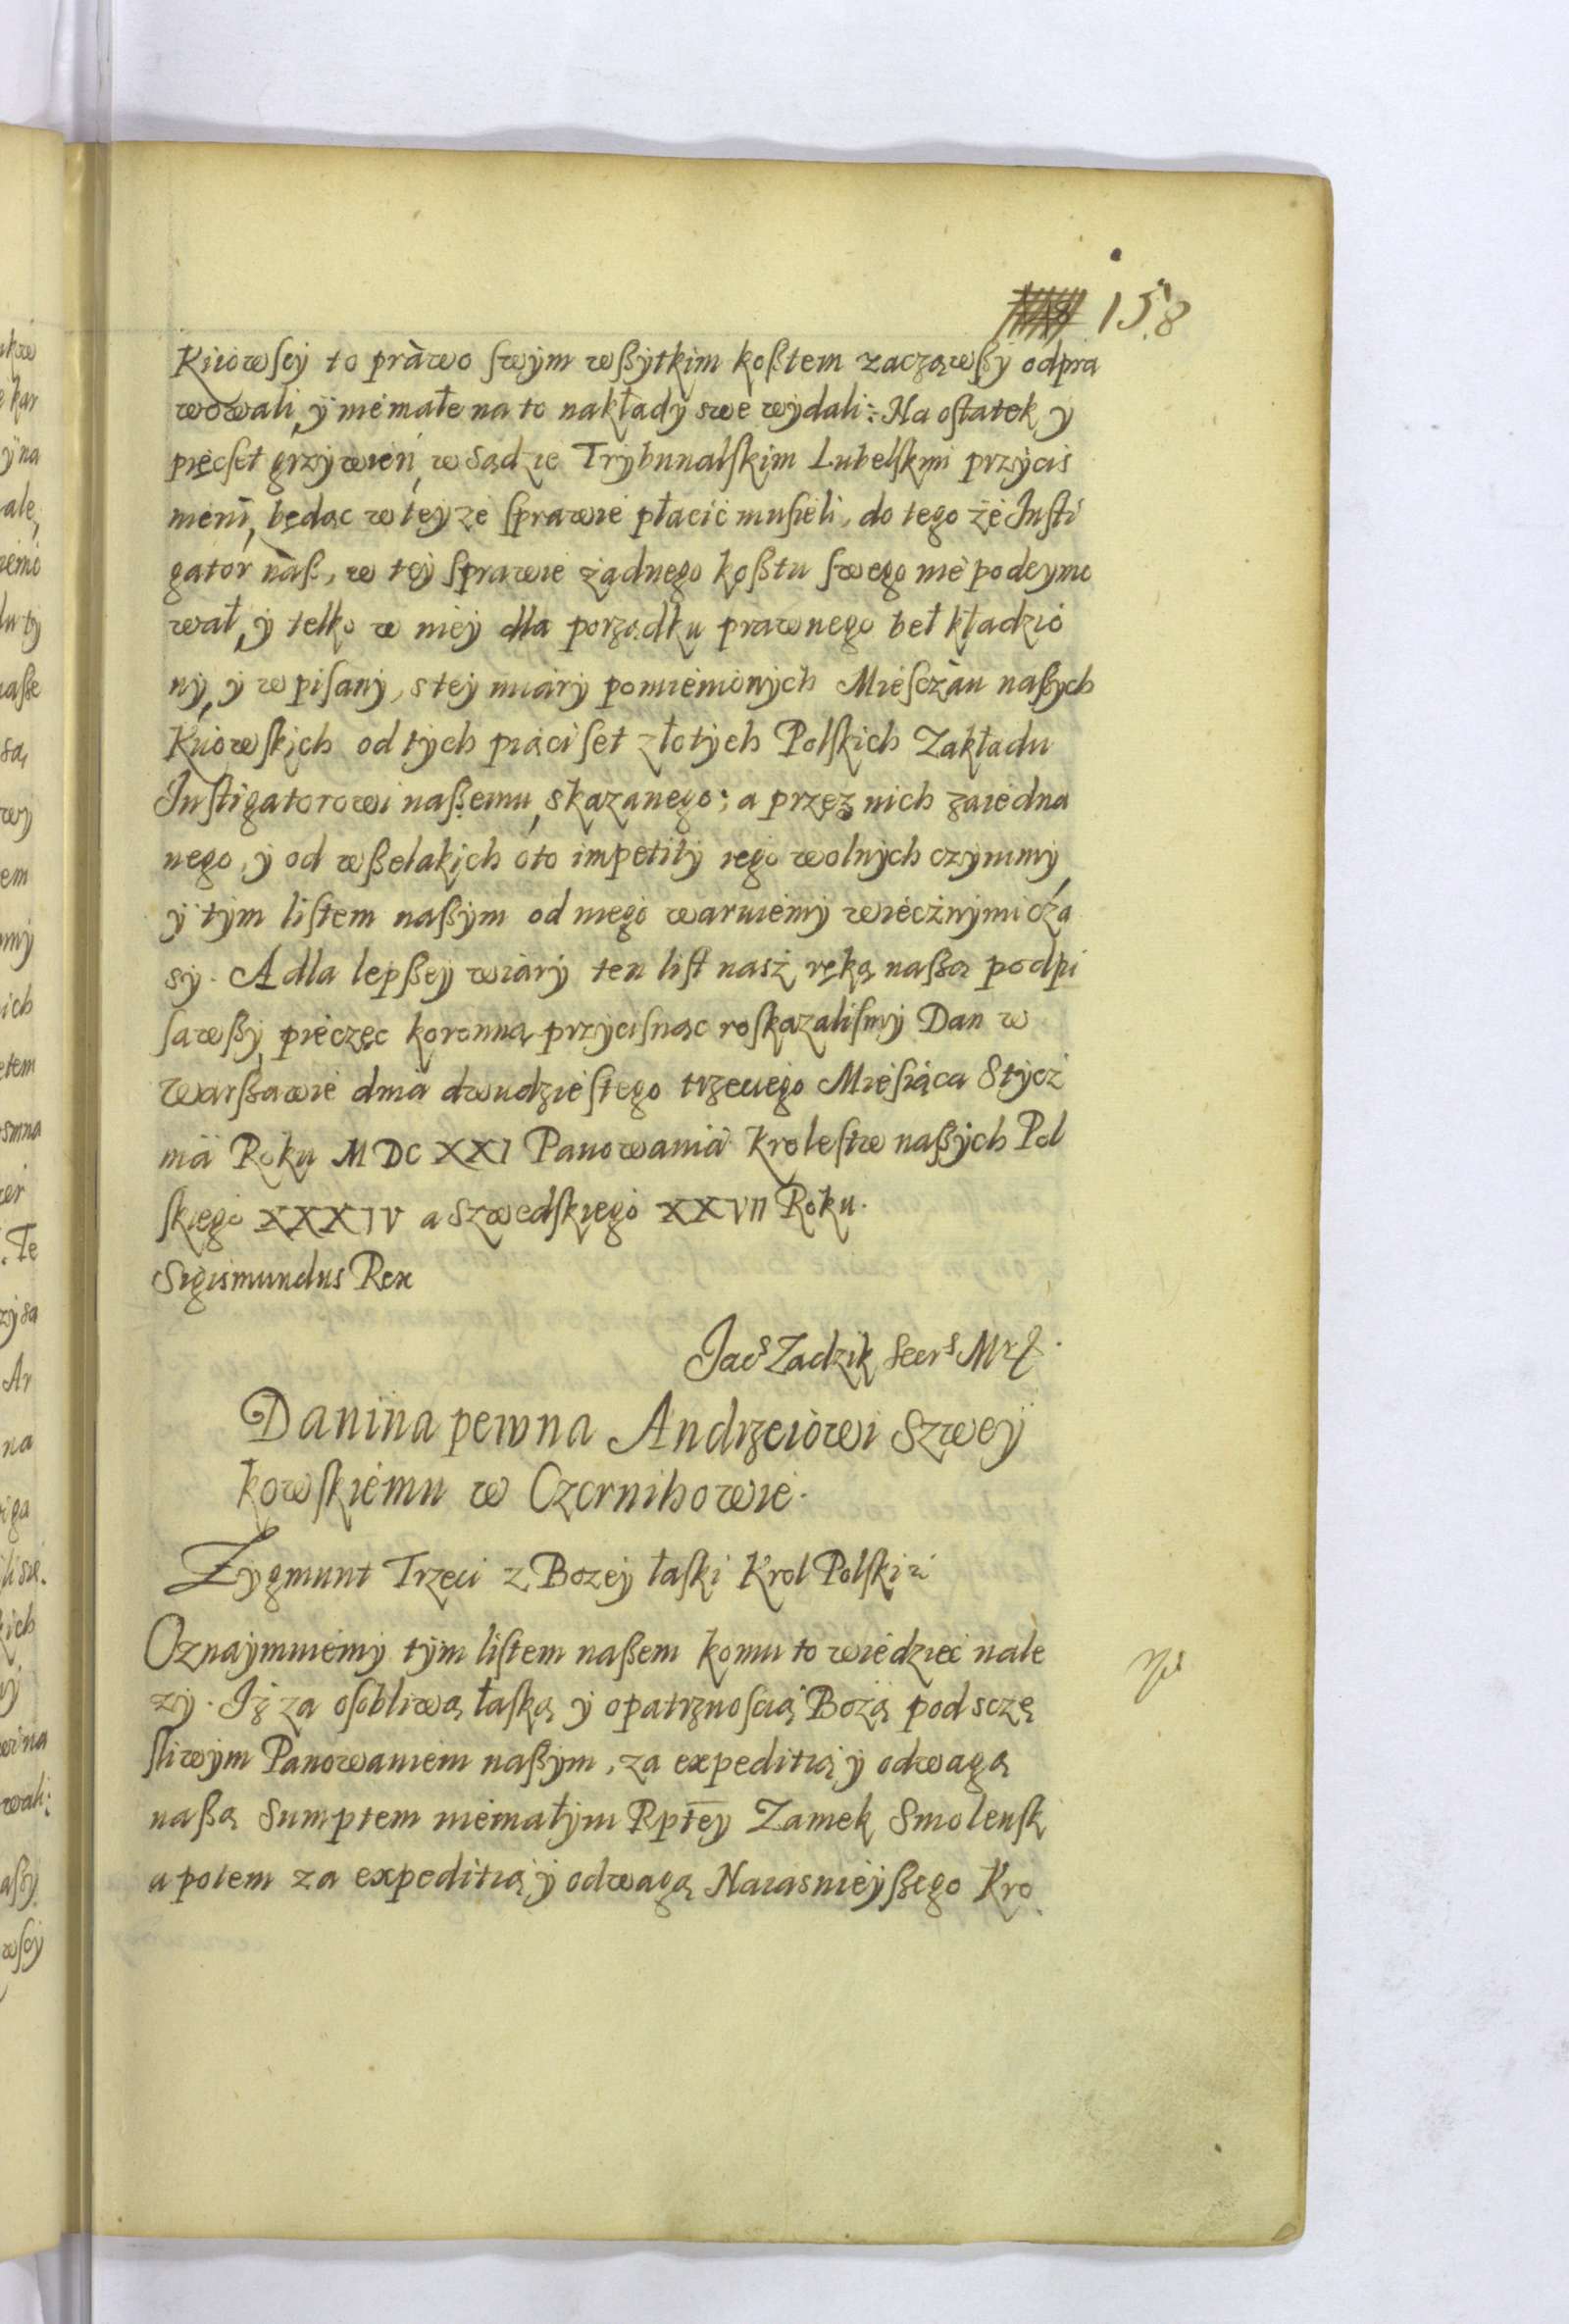 158
Kiiowscy to prawo swym wszytkim kosztem zacząwszy odpra
wowali, y niemałe na to nakłady swe wydali: Na ostatek y
piećset grzywien, w Sądzie Trybunalskim Lubelskim przycis
nieni, będąc w teyze sprawie płacić musieli, do tego że Insti
gator nasz, w tey sprawie żadnego kosztu swego nie podeymo
wał, y telko w niey dla porządku prawnego beł kładzio
ny, y wpisany, s tey miary pomienionych Miesczan naszych
Kiiowskich od tych piąci set złotych Polskich Zakładu
Instigatorowi naszemu, skazanego; a przez nich ziedna
nego, y od wszelakich oto impetity iego wolnych czynimy,
y tym listem naszym od niego waruiemy wiecznymi cza
sy. A dla lepszey wiary ten list nasz ręką naszą podpi
sawszy, pieczęc koronną przycisnąc roskazalismy Dan w
Warszawie dnia dwudziestego trzeciego Miesiąca Stycz
nia Roku MDCXXI Panowania Krolestw naszych Pol
skiego XXXIV a Szwedskiego XXVII Roku.
Sigismundus Rex
Jacs Zadzik Secrs Mrz.
Danina pewna Andrzeiowi Szwey
kowskiemu w Czernihowie.
Zygmunt Trzeci z Bozey łaski Krol Polski
Oznaymuiemy tym listem naszem komu to wiedzieć nale
zy. Iż za osobliwą łaską y opatrznoscią Bożą pod sczę
sliwym Panowaniem naszym, za expeditią y odwagą
naszą Sumptem niemałym Rptey Zamek Smolensk
a potem za expeditią y odwagą Naiasnieyszego Kro